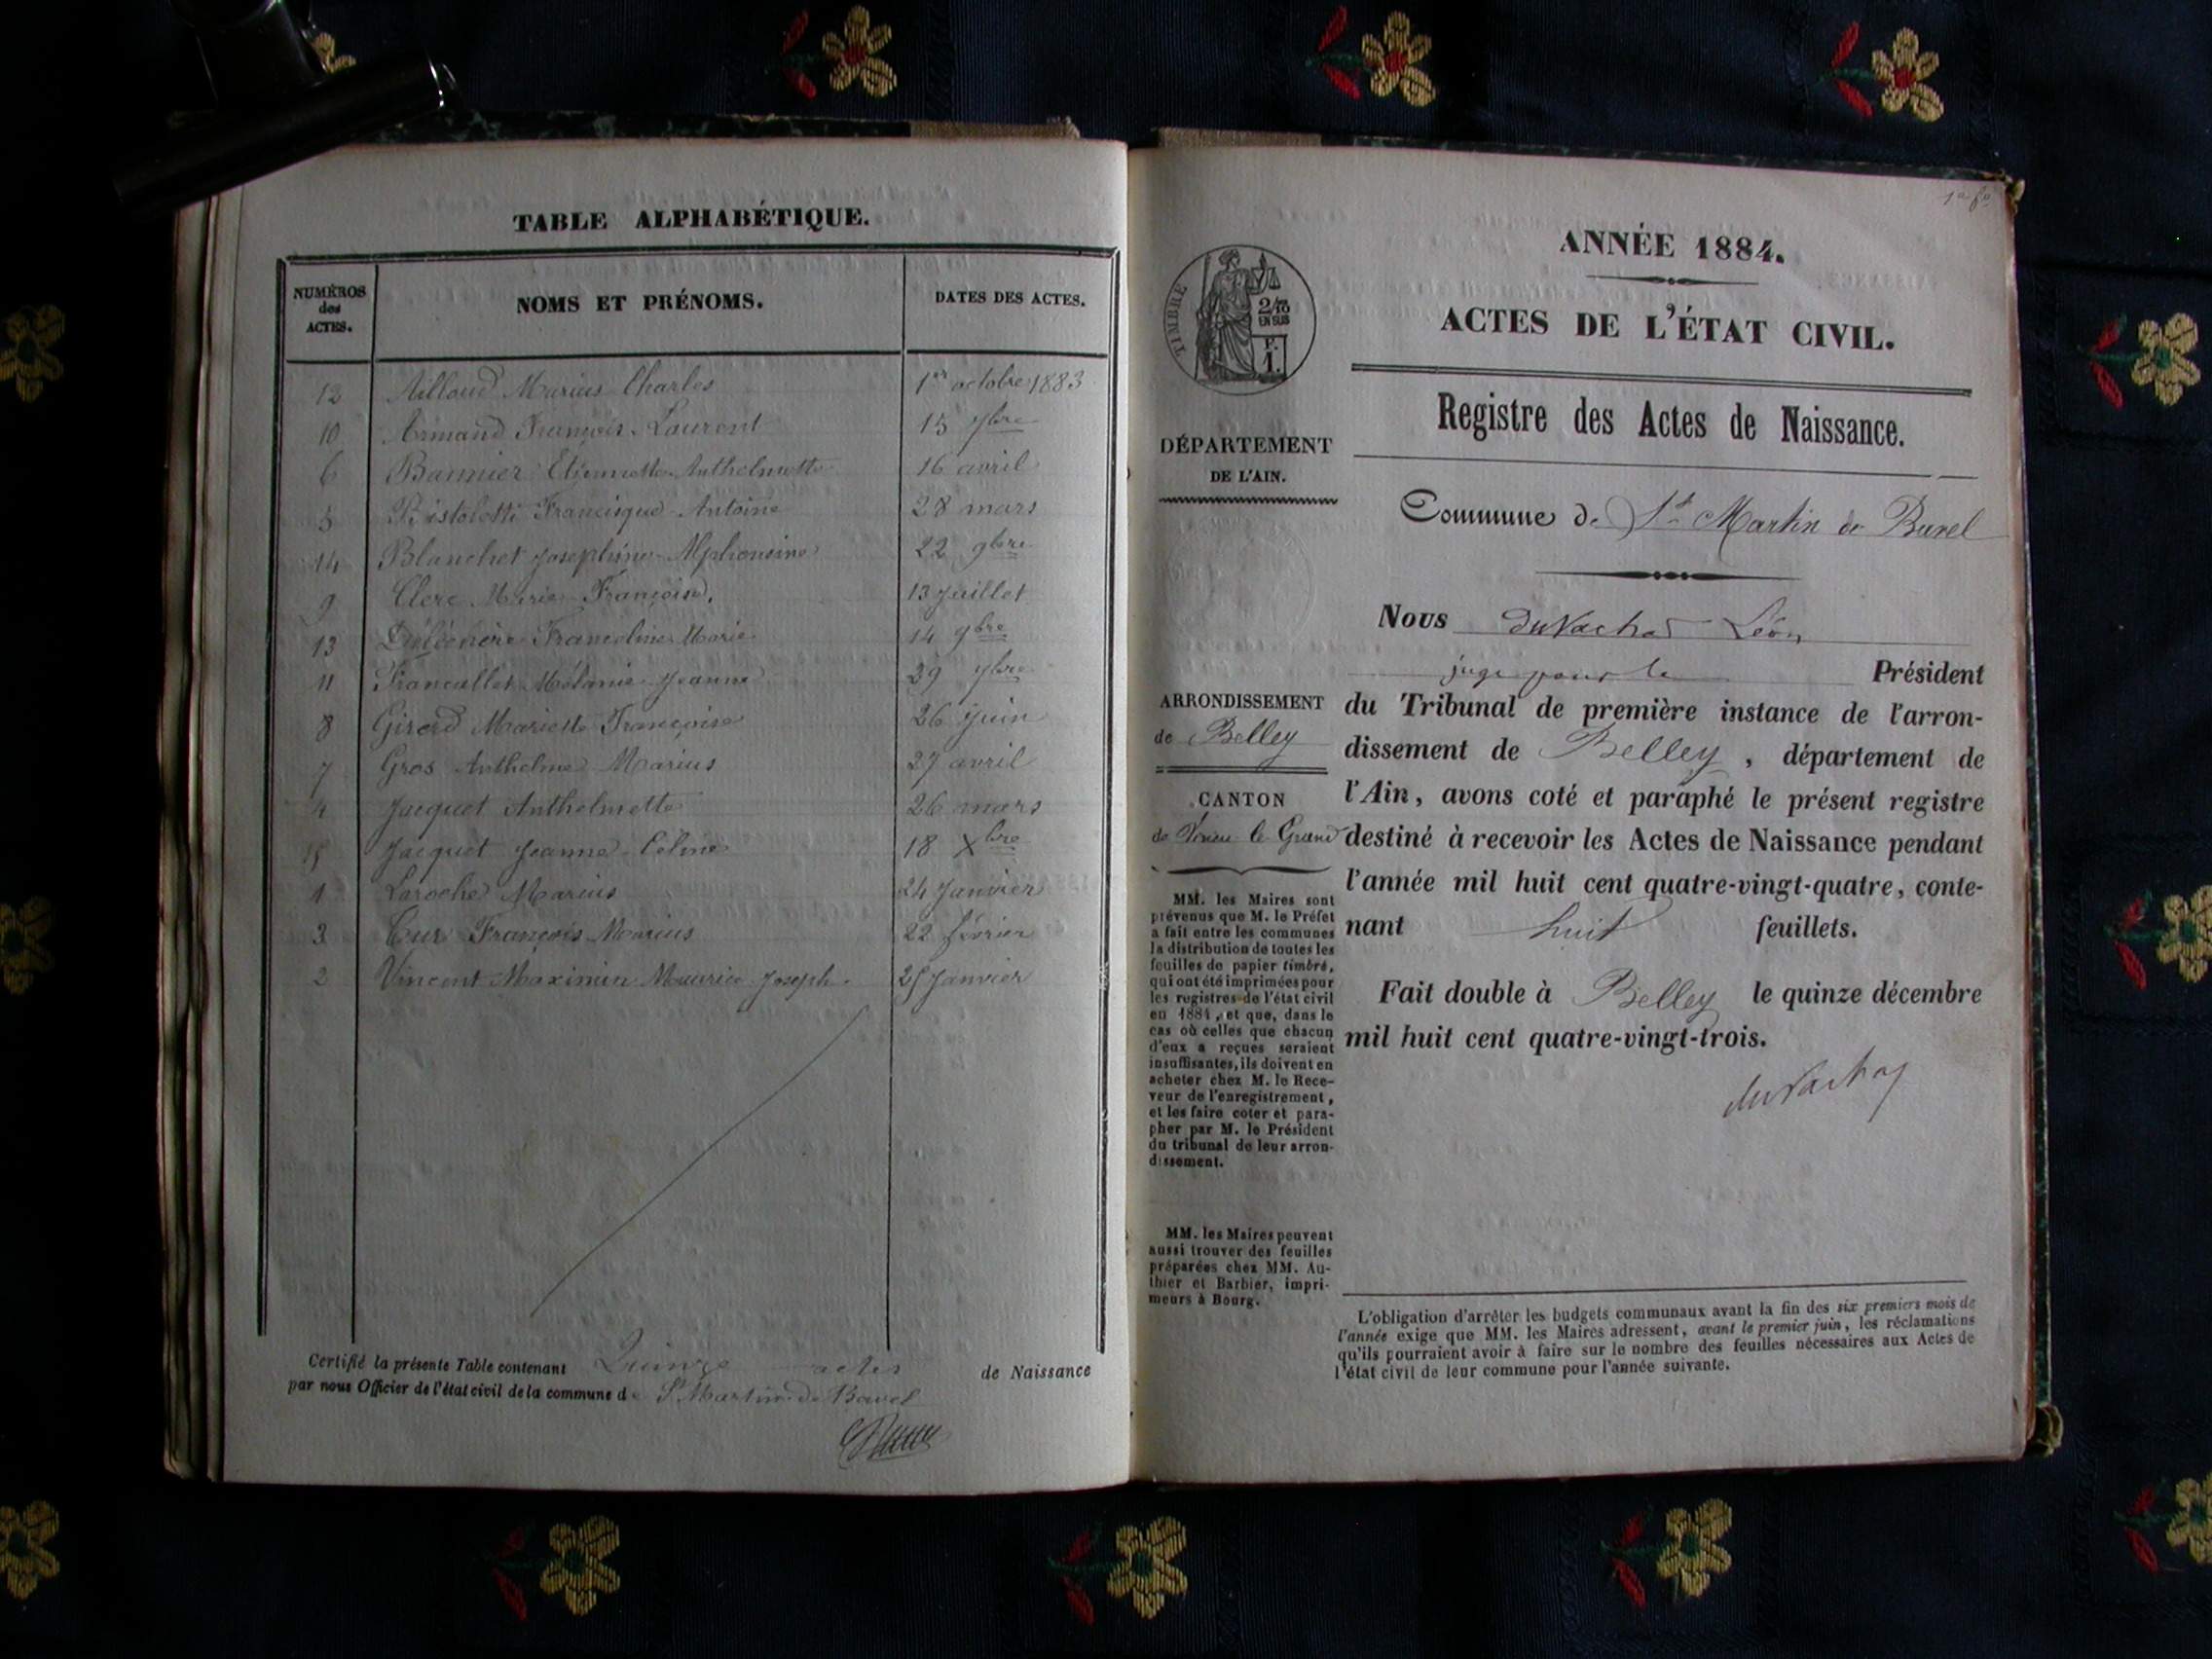 TABLE ALPHABÉTIQUE.
NUMÉROS des ACTES.
NOMS ET PRÉNOMS.
DATES DES ACTES.
12 Aillaud Marius Charles 1er octobre 1883
10 Armand François-Laurent 15 7bre
6 Bannier Etiennette-Anthelmette 16 avril
5 Bistoletti Francisque-Antoine 28 mars
14 Blanchet Joséphine-Alphonsine 22 9bre
9 Clerc Marie-Françoise. 13 Juillet
13 Franceline Marie 14 9bre
11 Francallet Mélanie-Jeanne 29 7bre
8 Girerd Mariette Françoise 26 Juin
7 Gros Anthelme Marius 27 avril
4 Jacquet Anthelmette 26 mars
15 Jacquet Jeanne-Celine 18 Xbre
1 Laroche Marius 24 Janvier
3 François-Marius 22 février
2 Vincent Maximin Maurice Joseph. 25 Janvier
Certifié la présente Table contenant Quinze actes de Naissance
par nous Officier de l'état civil de la commune de St Martin-de Bavel
TIMBRE
2/10
EN SUS
F.
1.
DÉPARTEMENT
DE L'AIN.
ARRONDISSEMENT
de Belley
CANTON
de Virieu le Grand
MM. les Maires sont
prévenus que M. le Préfet
a fait entre les communes
la distribution de toutes les
feuilles de papier timbré,
qui ont été imprimées pour
les registres de l'état civil
en 1884, et que, dans le
cas où celles que chacun
d'eux a reçues seraient
insuffisantes, ils doivent en
acheter chez M. le Rece-
veur de l'enregistrement,
et les faire coter et para-
pher par M. le Président
du tribunal de leur arron-
dissement.
MM. les Maires peuvent
aussi trouver des feuilles
préparées chez MM. Au-
thier et Barbier, impri-
meurs à Bourg.
ANNÉE 1884.
ACTES DE L'ÉTAT CIVIL.
Registre des Actes de Naissance.
Commune de St Martin de Bavel
Nous duVachat Léon
juge pour le Président
du Tribunal de première instance de l'arron-
dissement de Belley, département de
l'Ain, avons coté et paraphé le présent registre
destiné à recevoir les Actes de Naissance pendant
l'année mil huit cent quatre-vingt-quatre, conte-
nant huit feuillets.
Fait double à Belley le quinze décembre
mil huit cent quatre-vingt-trois.
duVachat
L'obligation d'arrêter les budgets communaux avant la fin des six premiers mois de
l'année exige que MM. les Maires adressent, avant le premier juin, les réclamations
qu'ils pourraient avoir à faire sur le nombre des feuilles nécessaires aux Actes de
l'état civil de leur commune pour l'année suivante.